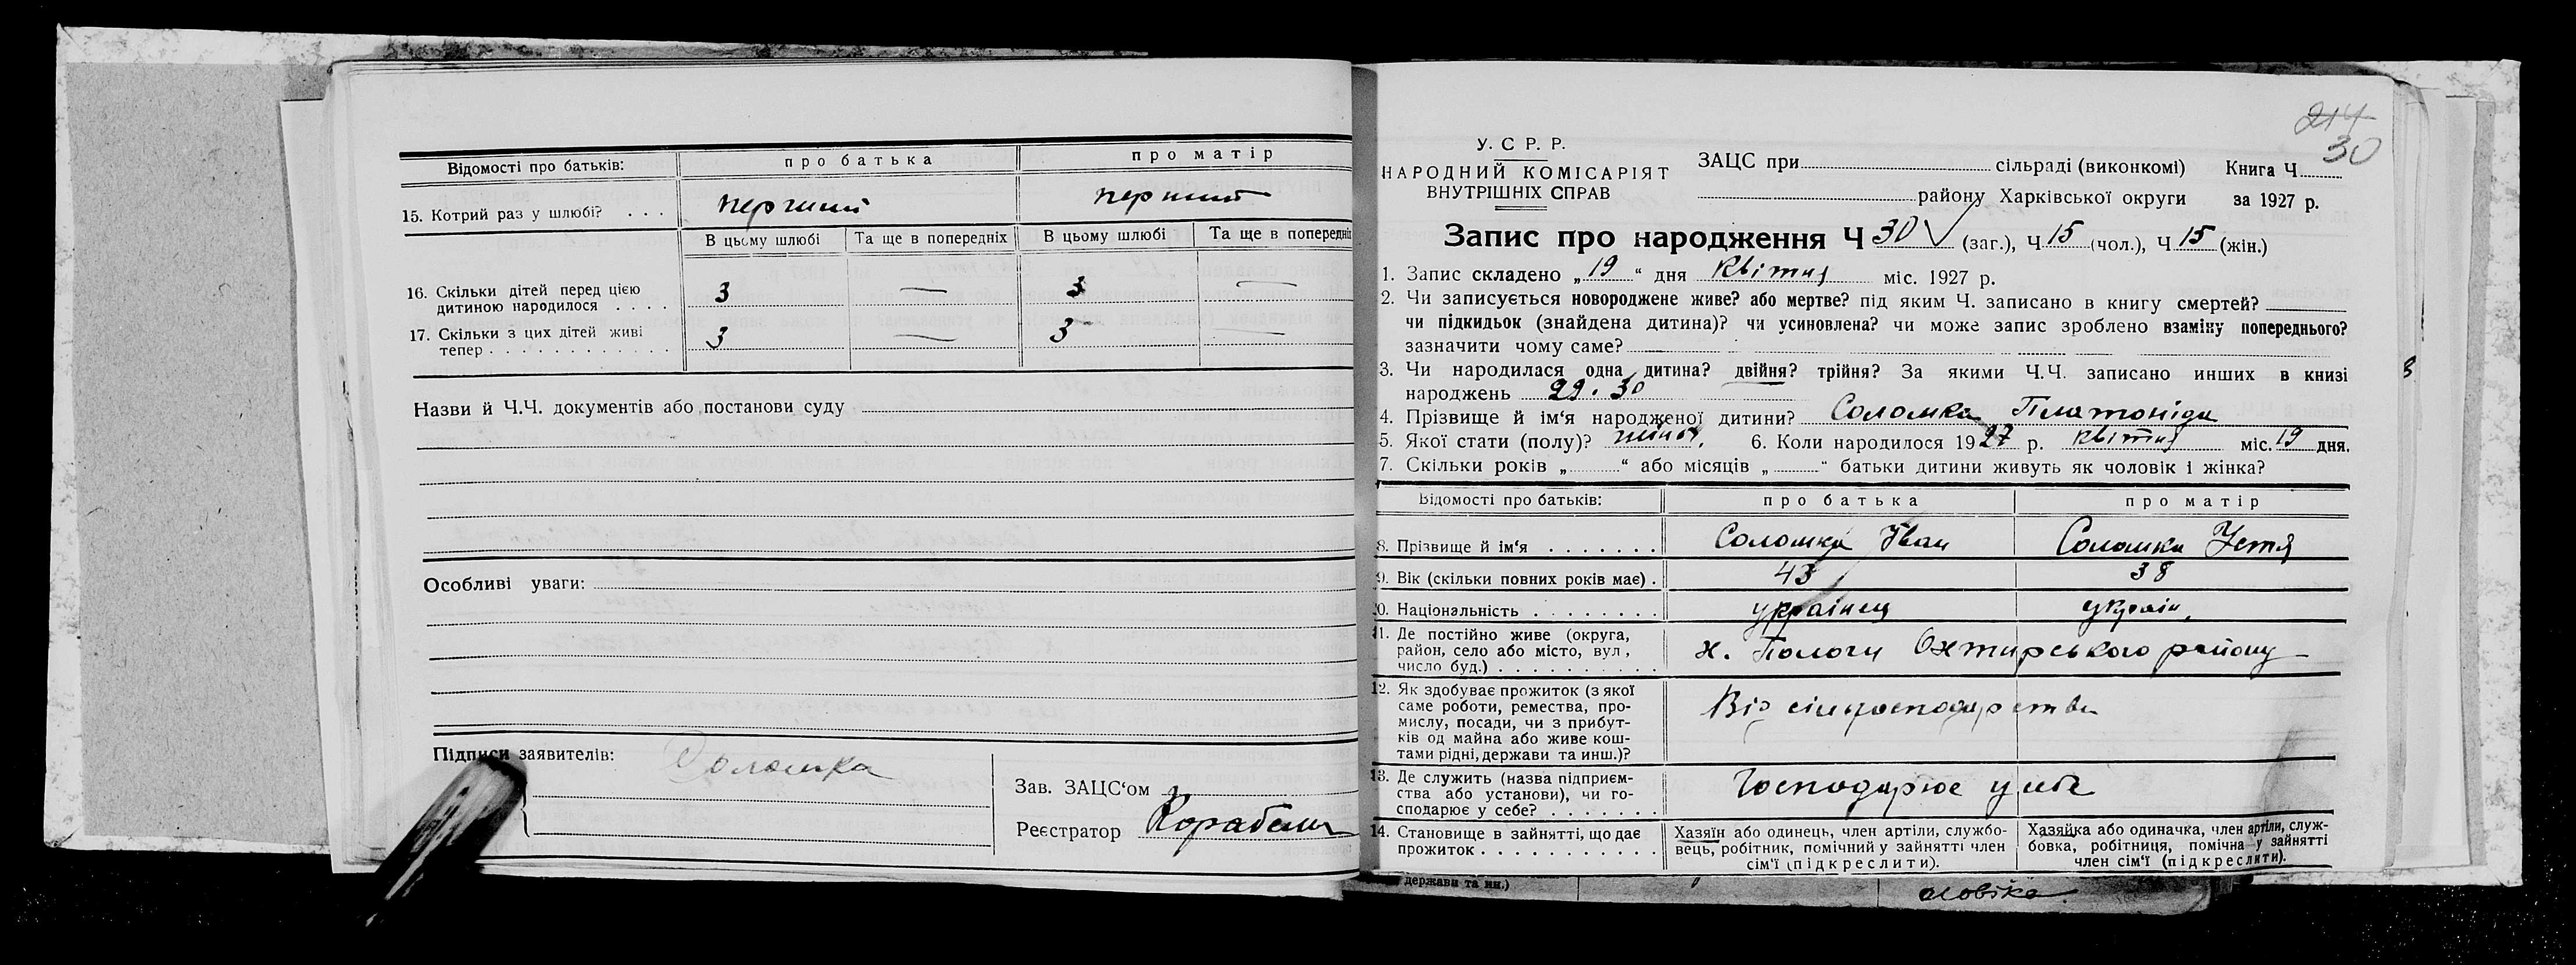 Відомості про батьків: про батька про матір
15. Котрий раз у шлюбі? . . . перший перший
В цьому шлюбі Та ще в попередніх В цьому шлюбі Та ще в попередніх
16. Скільки дітей перед цією
дитиною народилося . . . . 3 — 3 —
17. Скільки з цих дітей живі
тепер . . . . . . . . . . . . . 3 — 3 —
Назви й Ч.Ч. документів або постанови суду
Особливі уваги:
Підписи заявителів: Соломка
Зав. ЗАЦС‘ом
Реєстратор
214
30
У. С Р. Р.
НАРОДНИЙ КОМІСАРІЯТ
ВНУТРІШНІХ СПРАВ
ЗАЦС при сільраді (виконкомі) Книга Ч.
району Харківської округи за 1927 р.
Запис про народження Ч 30 (заг.), Ч 15 (чол.), Ч 15 (жін.)
1. Запис складено „19“ дня квітня міс. 1927 р.
2. Чи записується новороджене живе? або мертве? під яким Ч. записано в книгу смертей?
чи підкидьок (знайдена дитина)? чи усиновлена? чи може запис зроблено взаміну попереднього?
зазначити чому саме?
3. Чи народилася одна дитина? двійня? трійня? За якими Ч.Ч. записано инших в книзі
народжень 29. 30
4. Прізвище й ім‘я народженої дитини? Соломка Платоніда
5. Якої стати (полу)? жіноч. 6. Коли народилося 1927 р. квітня міс. 19 дня.
7. Скільки років „ “ або місяців „ “ батьки дитини живуть як чоловік і жінка?
Відомості про батьків: про батька про матір
8. Прізвище й ім‘я . . . . . . . Соломка Іван Соломка Устя
9. Вік (скільки повних років має) . 43 38
10. Національність . . . . . . . . українец україн.
11. Де постійно живе (округа,
район, село або місто, вул,
число буд.) . . . . . . . . . . х. Пологи Охтирського району
12. Як здобуває прожиток (з якої
саме роботи, ремества, про-
мислу, посади, чи з прибут-
ків од майна або живе кош-
тами рідні, держави та инш.)? Від сільгосподарства
13. Де служить (назва підприєм-
ства або установи), чи го-
сподарює у себе? . . . . . . . Господарює у себе
14. Становище в зайнятті, що дає
прожиток . . . . . . . . . . .
Хазяїн або одинець, член артіли, службо-
вець, робітник, помічний у зайнятті член
сім‘ї (підкреслити).
Хазяйка або одиначка, член артіли, служ-
бовка, робітниця, помічна у зайнятті
член сім‘ї (підкреслити).
держави та ин.)